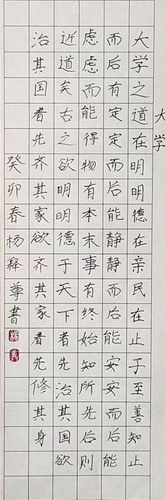 大学
大学之道在明明德在亲民在止于至善知止
而后有定定而后能静静而后能安安而后能
虑虑而能得物有本末事有终始知所先后则
近道矣古之欲明明德于天下者先治其国欲
治其国者先齐其家欲齐其家者先修其身
癸卯春杨释尊書